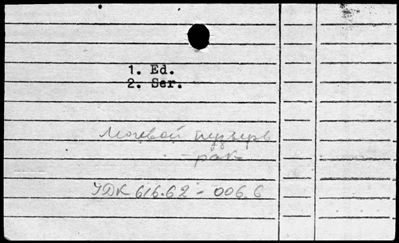 1. Ed.
2. Ser.
Мочевой пузырь
рак
УДК 616.62-006.6